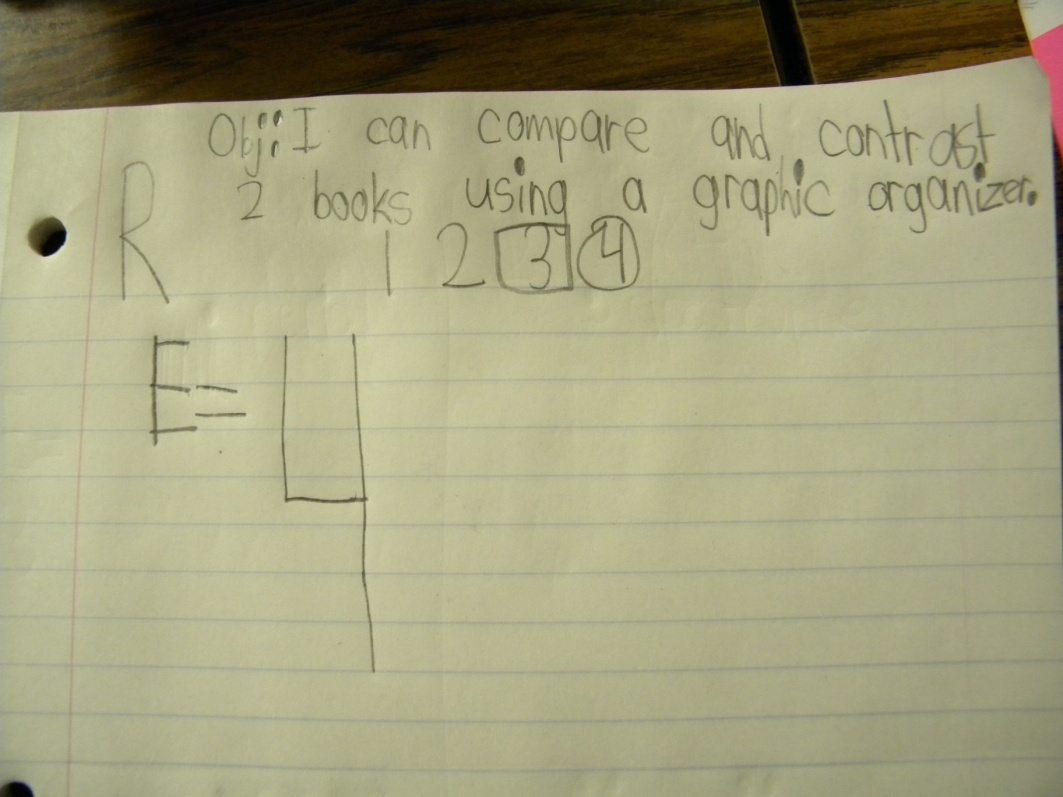 Obj: I can compare and contrast
R 2 books using a graphic organizer.
1 2 3 4
E= 4